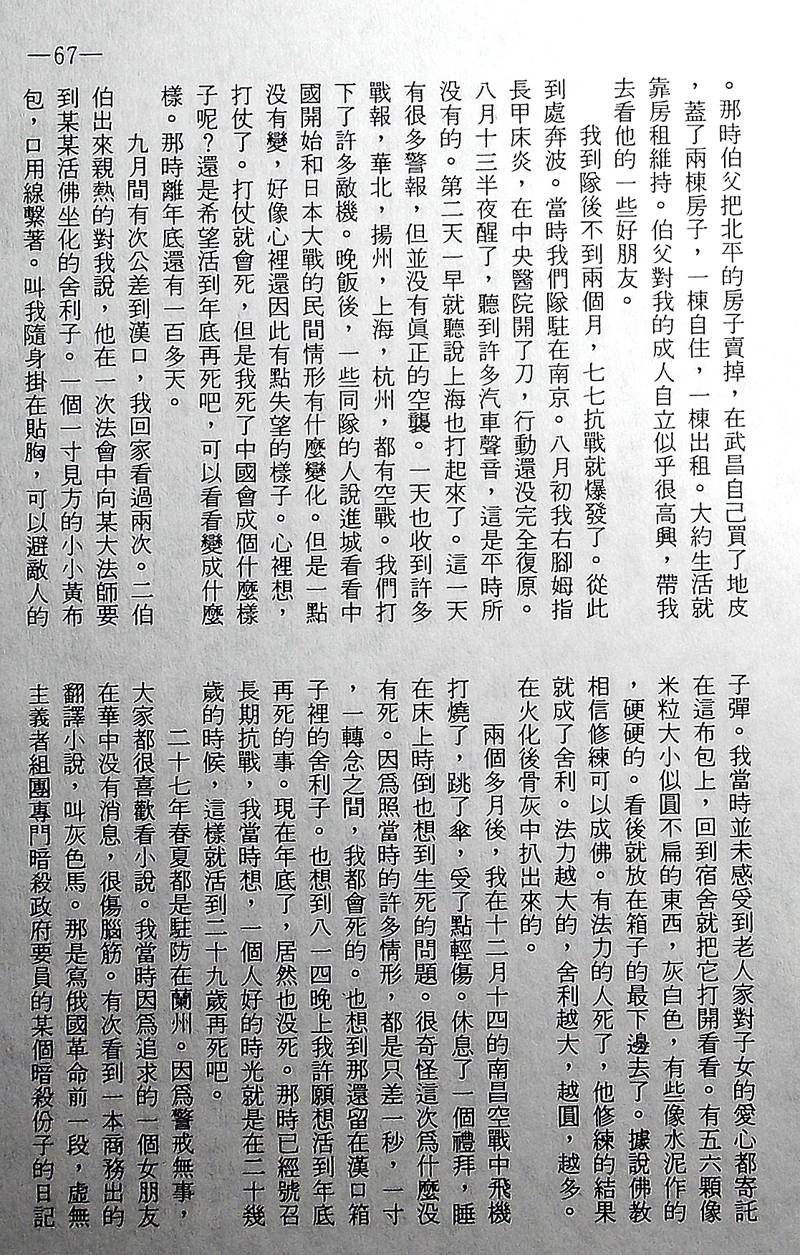 —67—
。那時伯父把北平的房子賣掉，在武昌自己買了地皮
，蓋了兩棟房子，一棟自住，一棟出租。大約生活就
靠房租維持。伯父對我的成人自立似乎很高興，帶我
去看他的一些好朋友。
我到隊後不到兩個月，七七抗戰就爆發了。從此
到處奔波。當時我們隊駐在南京。八月初我右腳姆指
長甲床炎，在中央醫院開了刀，行動還没完全復原。
八月十三半夜醒了，聽到許多汽車聲音，這是平時所
没有的。第二天一早就聽說上海也打起來了。這一天
有很多警報，但並没有眞正的空襲。一天也收到許多
戰報，華北，揚州，上海，杭州，都有空戰。我們打
下了許多敵機。晚飯後，一些同隊的人說進城看看中
國開始和日本大戰的民間情形有什麼變化。但是一點
没有變，好像心裡還因此有點失望的樣子。心裡想，
打仗了。打仗就會死，但是我死了中國會成個什麼樣
子呢？還是希望活到年底再死吧，可以看看變成什麼
樣。那時離年底還有一百多天。
九月間有次公差到漢口，我回家看過兩次。二伯
伯出來親熱的對我說，他在一次法會中向某大法師要
到某某活佛坐化的舍利子。一個一寸見方的小小黃布
包，口用線繫著。叫我隨身掛在貼胸，可以避敵人的
子彈。我當時並未感受到老人家對子女的愛心都寄託
在這布包上，回到宿舍就把它打開看看。有五六顆像
米粒大小似圓不扁的東西，灰白色，有些像水泥作的
，硬硬的。看後就放在箱子的最下邊去了。據說佛教
相信修練可以成佛。有法力的人死了，他修練的結果
就成了舍利。法力越大的，舍利越大，越圓，越多。
在火化後骨灰中扒出來的。
兩個多月後，我在十二月十四的南昌空戰中飛機
打燒了，跳了傘，受了點輕傷。休息了一個禮拜，睡
在床上時倒也想到生死的問題。很奇怪這次爲什麼没
有死。因爲照當時的許多情形，都是只差一秒，一寸
，一轉念之間，我都會死的。也想到那還留在漢口箱
子裡的舍利子。也想到八一四晚上我許願想活到年底
再死的事。現在年底了，居然也没死。那時已經號召
長期抗戰，我當時想，一個人好的時光就是在二十幾
歲的時候，這樣就活到二十九歲再死吧。
二十七年春夏都是駐防在蘭州。因爲警戒無事，
大家都很喜歡看小說。我當時因爲追求的一個女朋友
在華中没有消息，很傷腦筋。有次看到一本商務出的
翻譯小說，叫灰色馬。那是寫俄國革命前一段，虛無
主義者組團專門暗殺政府要員的某個暗殺份子的日記